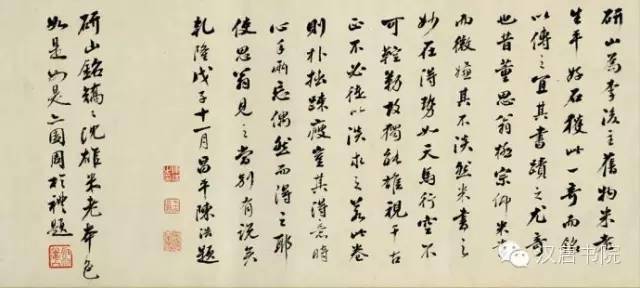 研山為李後主舊物米老
生平好石獲此一奇而銘
以傳之宜其書蹟之尤奇
也昔董思翁極宗仰米書
而微嫌其不淡然米書之
妙在得勢如天馬行空不
可控勒故獨能雄視千古
正不必徒以淡求之若此卷
則朴拙疎瘦豈其得意時
心手兩忘偶然而得之耶
使思翁見之當別有說矣
乾隆戊子十一月昌平陳浩題
研山銘矯〻沈雄米老本色
如是如是亦園周於禮題
汉唐书院